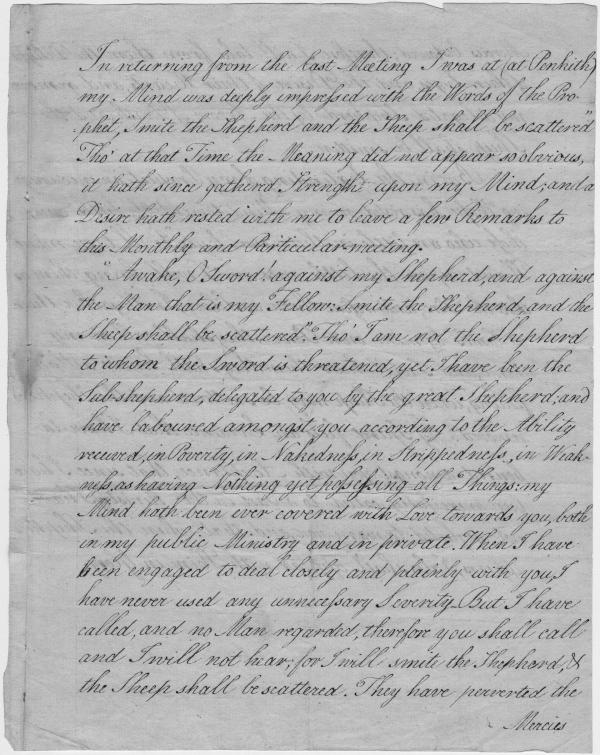 In returning from the last Meeting I was at (at Penketh)
my Mind was deeply impressed with the Words of the Pro-
phet, "Smite the Shepherd and the Sheep shall be scattered"
Tho' at that Time the Meaning did not appear so obvious,
it hath since gathered Strength upon my Mind; and a
Desire hath rested with me to leave a few Remarks to
this Monthly and Particular meeting.
"Awake, O Sword! against my Shepherd, and against
the Man that is my Fellow: Smite the Shepherd, and the
Sheep shall be scattered". Tho' I am not the Shepherd
to whom the Sword is threatened, yet I have been the
Sub-shepherd, delegated to you by the great Shepherd; and
have laboured amongst you according to the Ability
received, in Poverty, in Nakedness, in Strippedness, in Weak-
ness, as having Nothing yet possessing all Things: my
Mind hath been ever covered with Love towards you, both
in my public Ministry and in private. When I have
been engaged to deal closely and plainly with you, I
have never used any unnecessary Severity. But I have
called, and no Man regarded, therefore you shall call
and I will not hear; for I will smite the Shephard, &
the Sheep shall be scattered. They have perverted the
Mercies